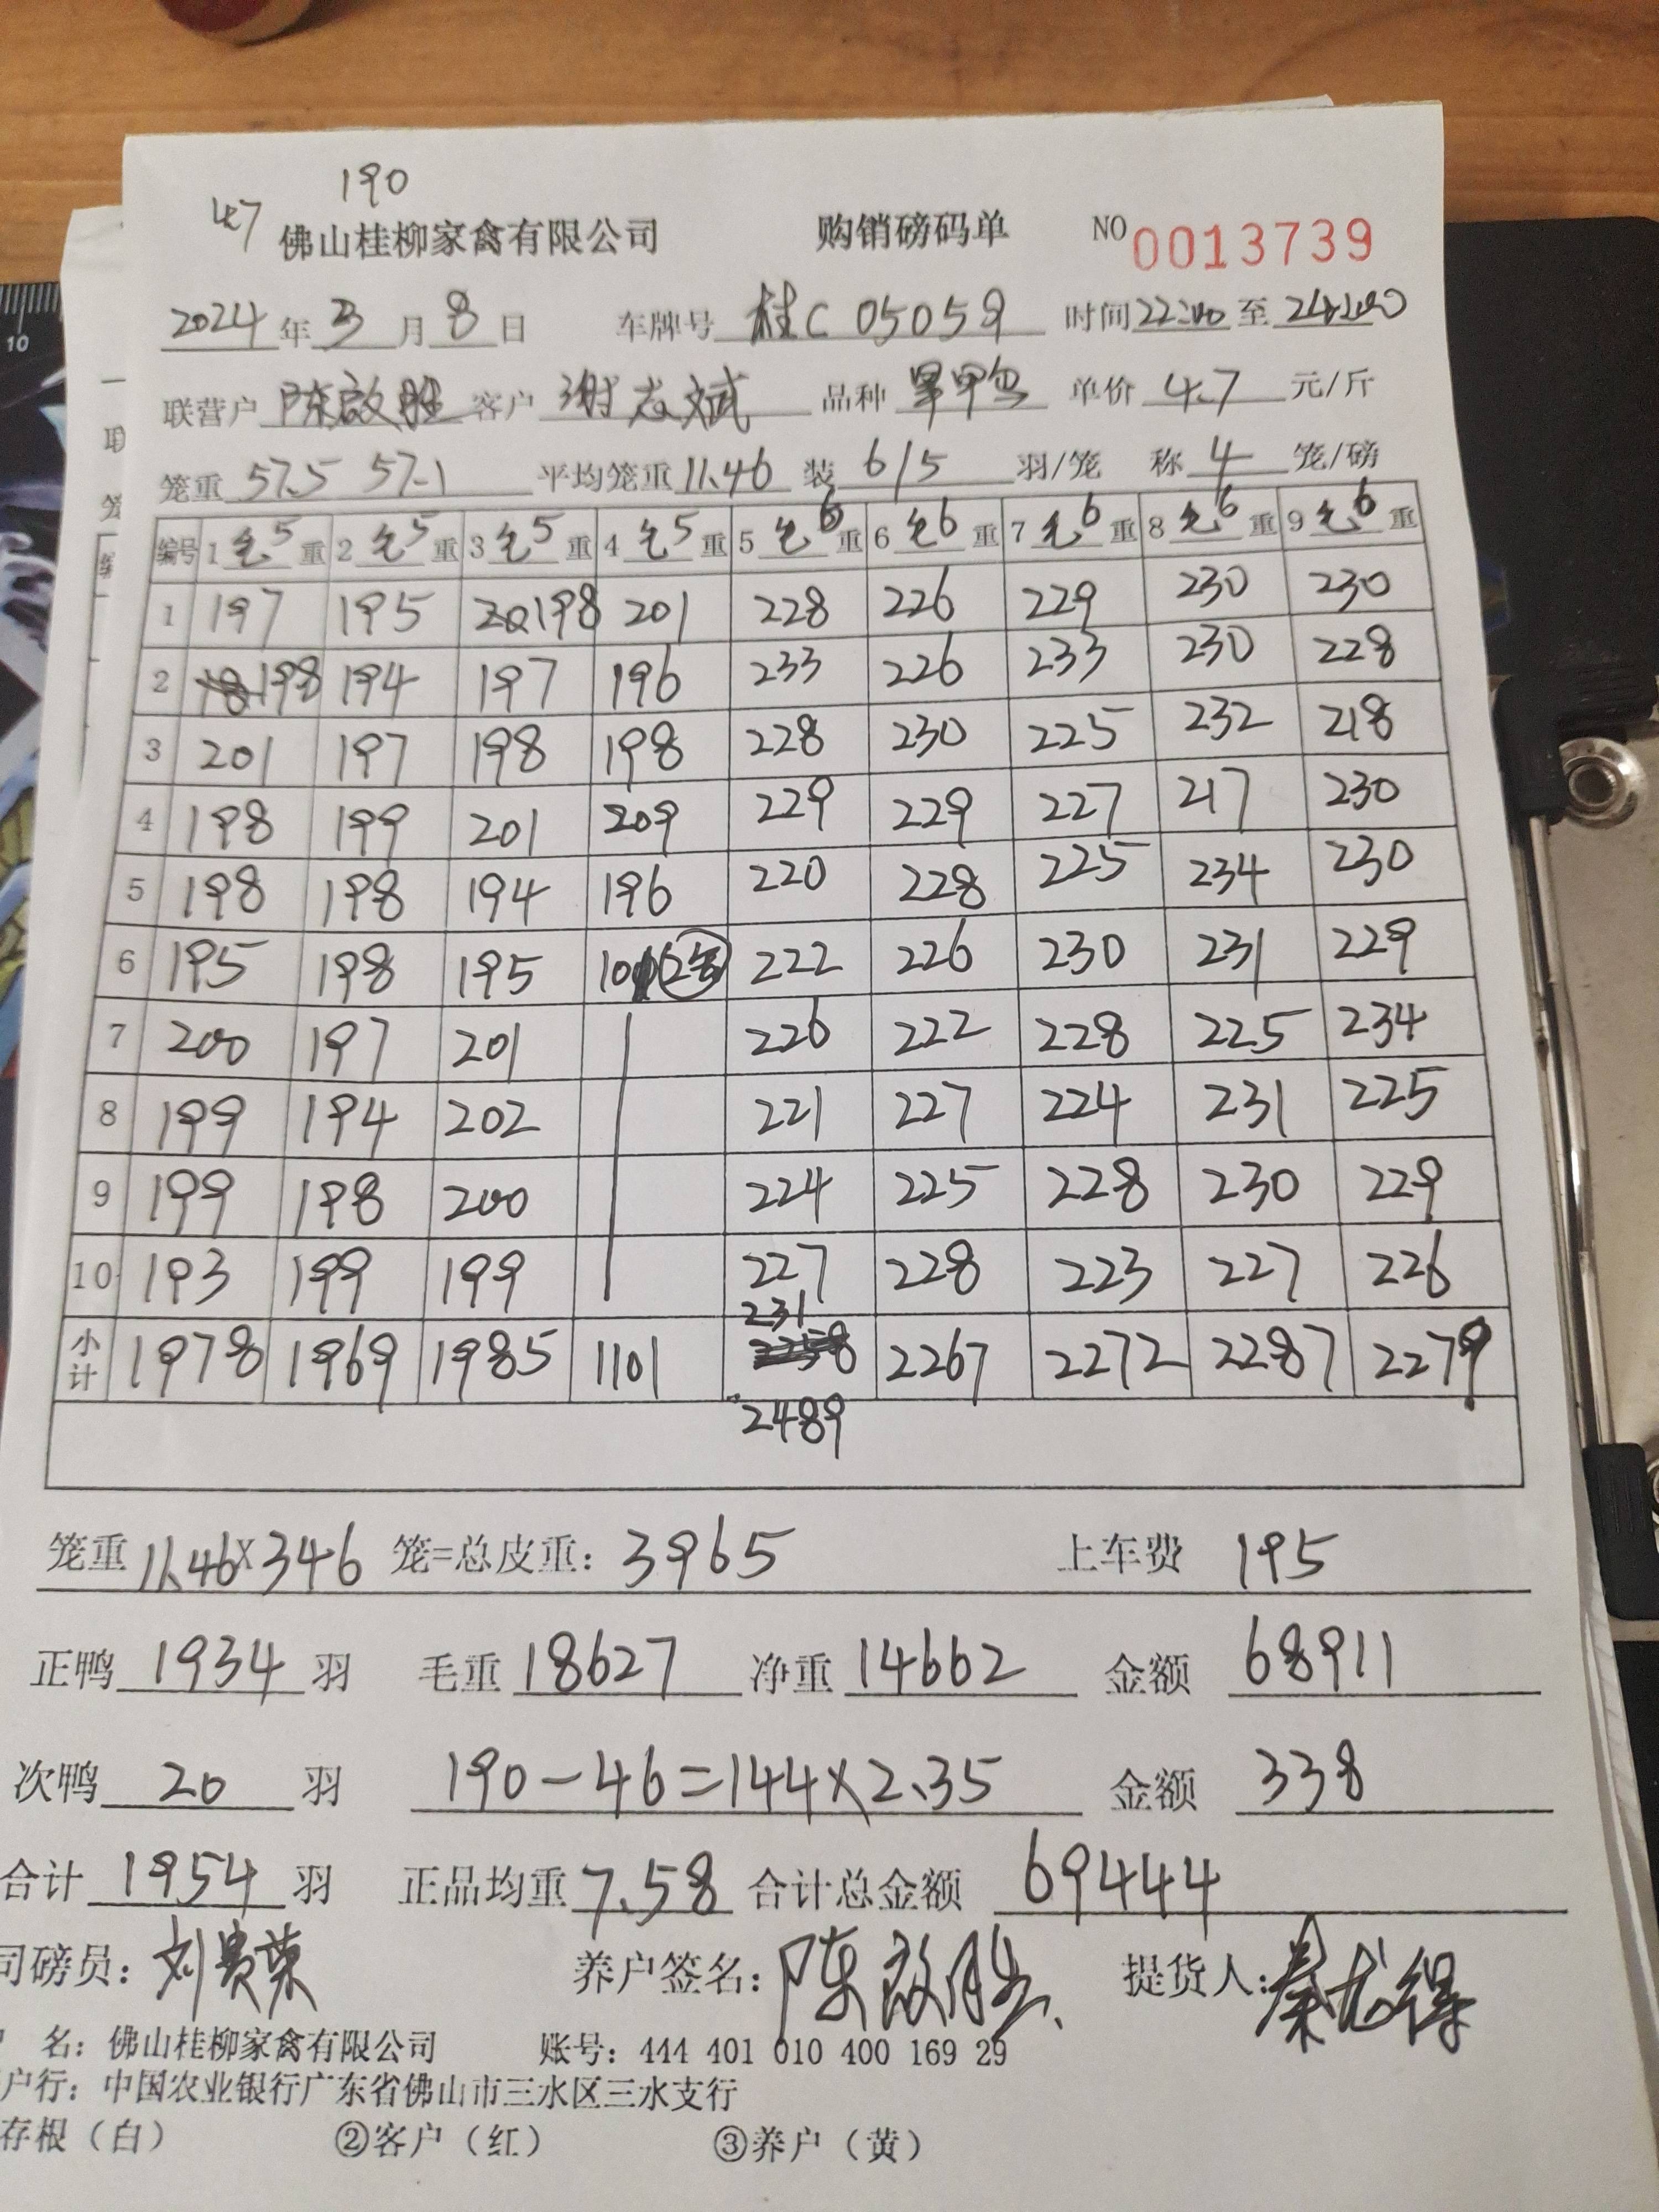 190
47
佛山桂柳家禽有限公司 购销磅码单 NO 0013739
2024年3月8日 车牌号 桂C 05059 时间22:00至24:00
联营户 陈啟胜 客户 谢志斌 品种 单价 4.7 元/斤
笼重 57.5 57.1 平均笼重 11.46 装 6/5 羽/笼 称 4 笼/磅
编号 1 毛5 重 2 毛5 重 3 毛5 重 4 毛5 重 5 毛6 重 6 毛6 重 7 毛6 重 8 毛6 重 9 毛6 重
1 197 195 198 201 228 226 229 230 230
2 198 194 197 196 233 226 233 230 228
3 201 197 198 198 228 230 225 232 218
4 198 199 201 209 229 229 227 217 230
5 198 198 194 196 220 228 225 234 230
6 195 198 195 101 222 226 230 231 229
7 200 197 201 226 222 228 225 234
8 199 194 202 221 227 224 231 225
9 199 198 200 224 225 228 230 229
10 193 199 199 227 228 223 227 226
231
小计 1978 1969 1985 1101 2258 2267 2272 2287 2279
2489
笼重 11.46×346 笼=总皮重: 3965 上车费 195
正鸭 1934 羽 毛重 18627 净重 14662 金额 68911
次鸭 20 羽 190-46=144×2.35 金额 338
合计 1954 羽 正品均重 7.58 合计总金额 69444
司磅员: 刘贵荣 养户签名: 陈啟胜 提货人: 秦龙得
名: 佛山桂柳家禽有限公司 账号: 444 401 010 400 169 29
户行: 中国农业银行广东省佛山市三水区三水支行
存根（白） ②客户（红） ③养户（黄）